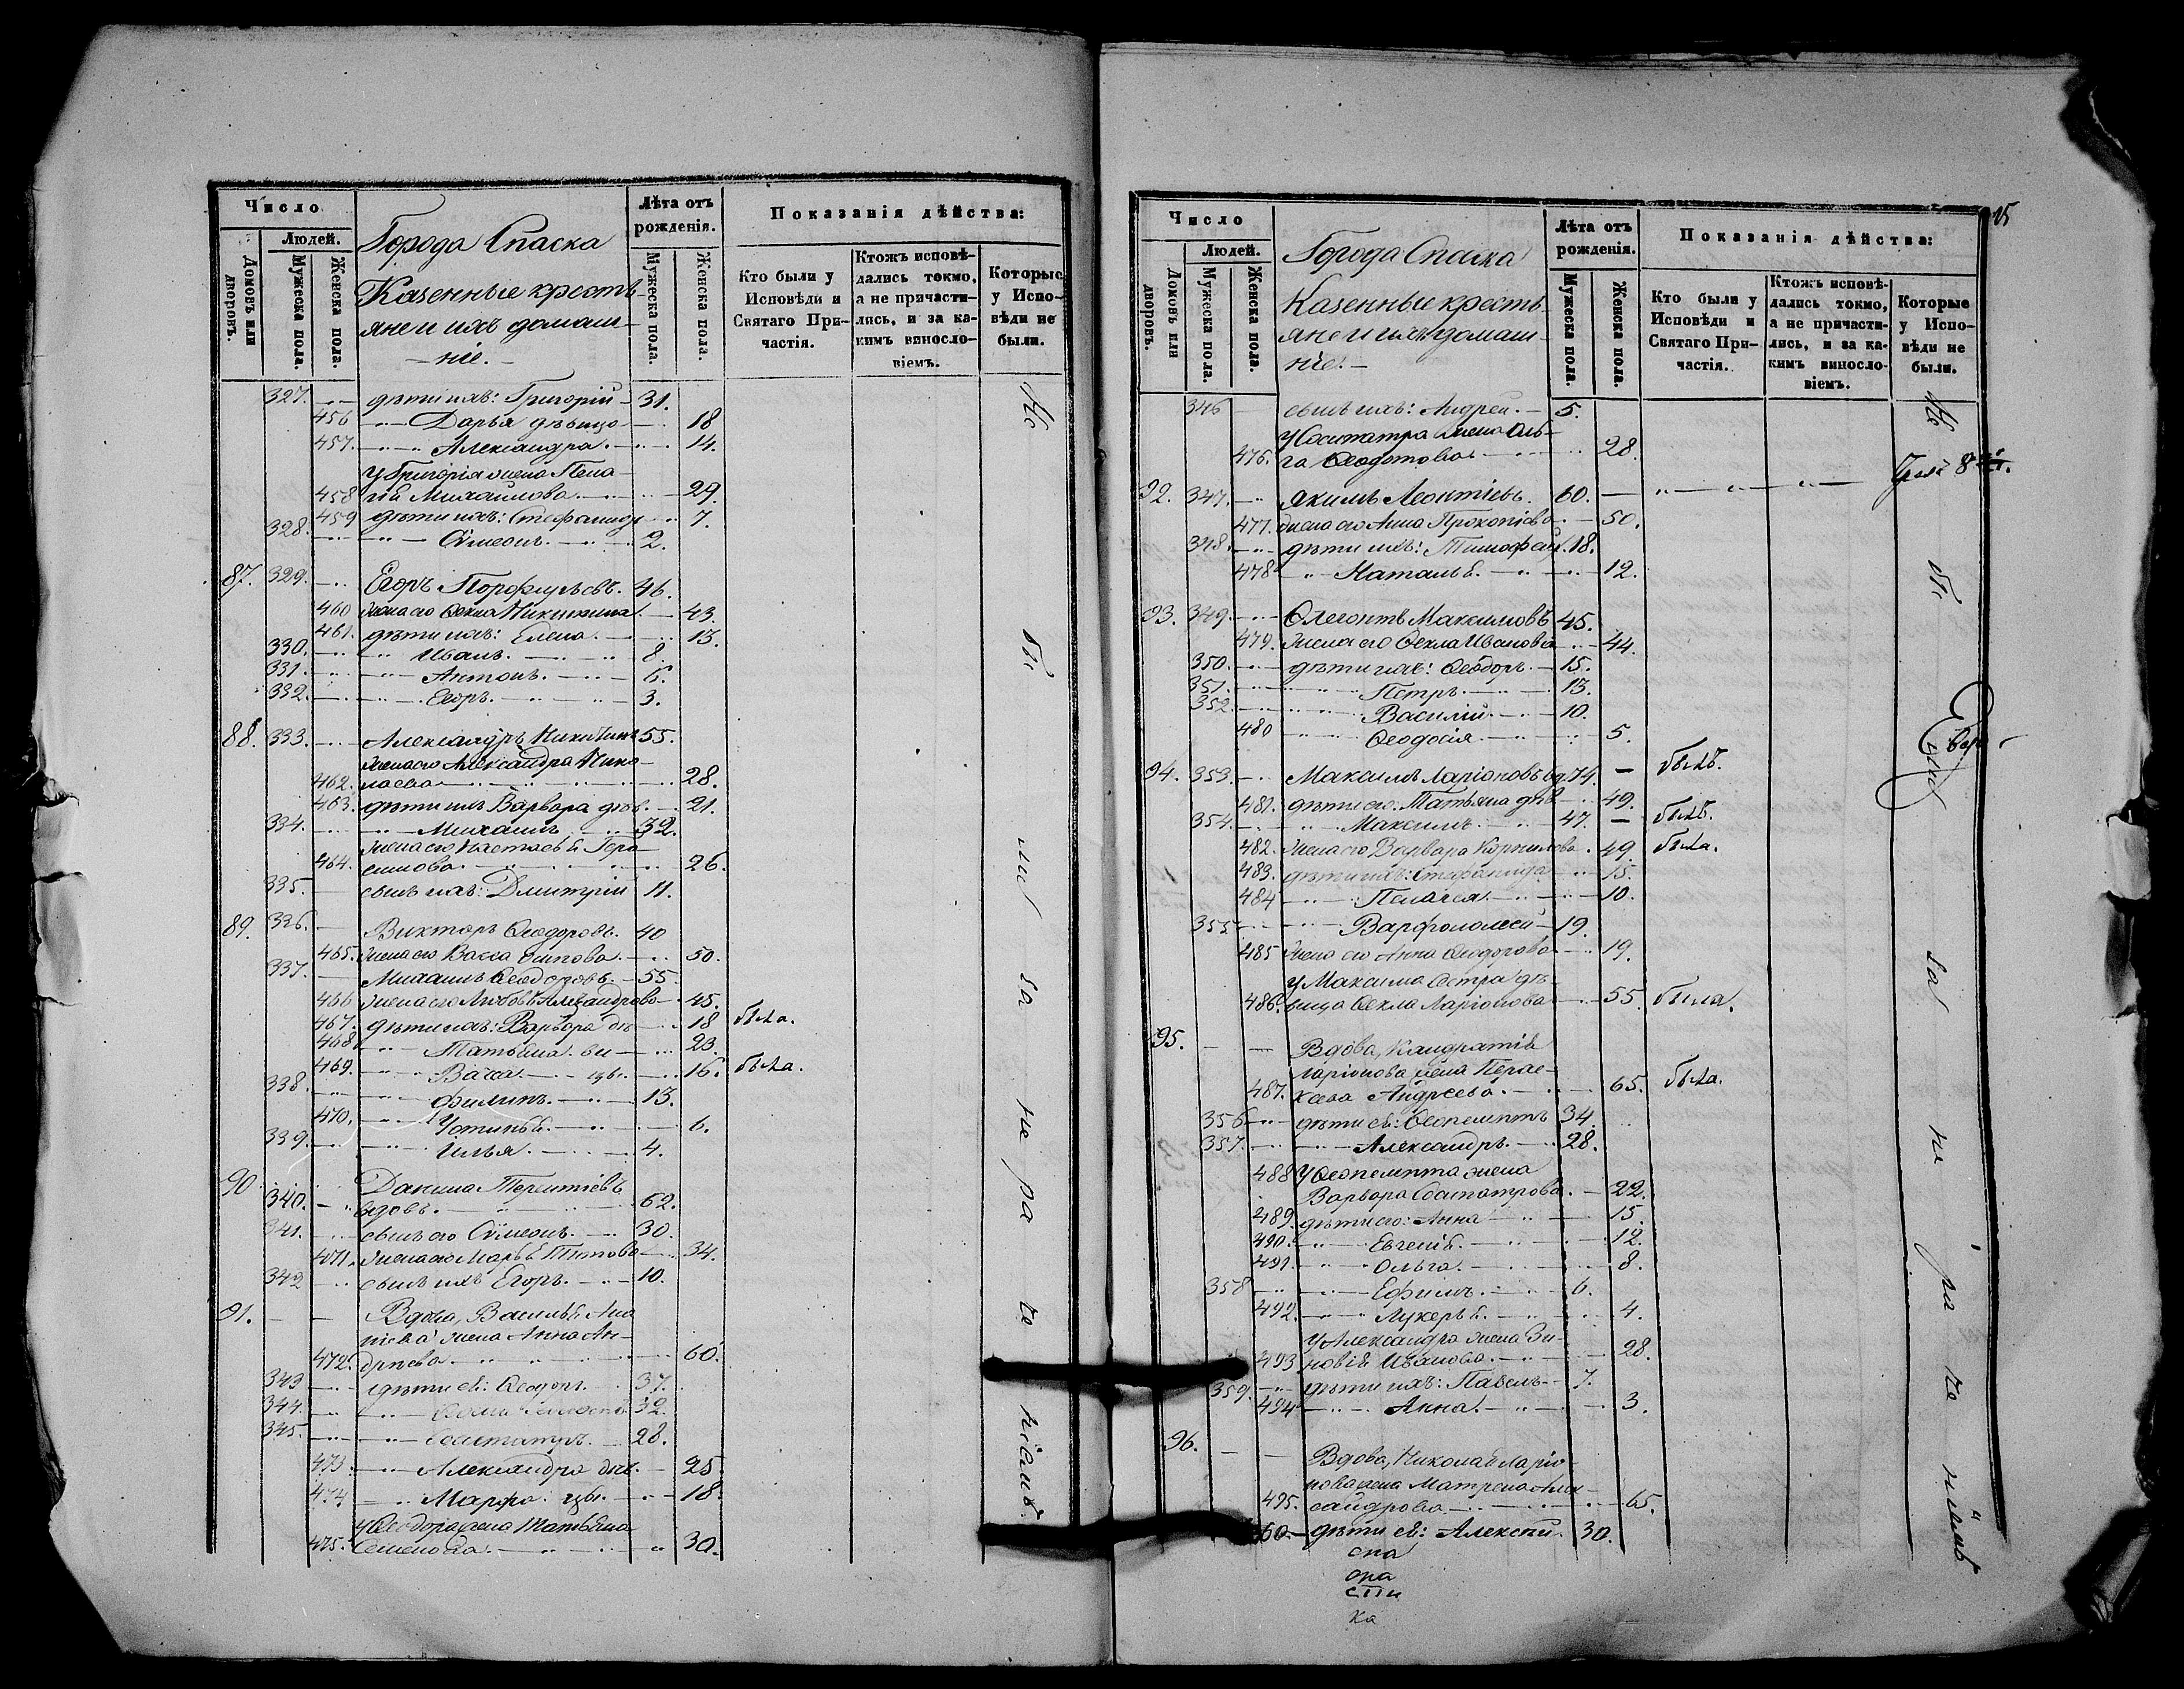 Число
Людей.
Домовъ или дворовъ.
Мужеска пола.
Женска пола.
Города Спаска
Казенные кресть-
яне и ихъ домаш-
ніе.
Лѣта отъ рожденія.
Мужеска пола.
Женска пола.
Показанія дѣйства:
Кто были у Исповѣди и Святаго При-частія.
Ктожъ исповѣ-дались токмо, а не причасти-лись, и за ка-кимъ винослo-віемъ.
Которые у Испо-вѣди не были.
327. дѣти ихъ: Григорій 31.
456 Дарья дѣвица 18
457. Александра. 14.
у Григорія жена Пела-
458 гія Михайлова. 29.
459 дѣти ихъ: Стефанида 7.
328. Сѵмеонъ. 2.
87. 329. Егоръ Порфирьевъ. 46.
460 жена его Ѳекла Никитина 43.
461. дѣти ихъ: Елена. 13.
330. Иванъ. 8.
331. Антонъ. 6.
332. Егоръ. 3.
88. 333. Александръ Никитинъ 55.
жена его Александра Нико-
462. лаева 28.
463. дѣти ихъ Варвара дѣв. 21.
334. Михаилъ 32.
жена его Настасья Гера-
464. симова. 26.
335. сынъ ихъ: Дмитрій 11.
89. 336. Викторъ Ѳеодоровъ. 40
465. жена его Васса Осипова. 50.
337. Михаилъ Ѳеодоровъ. 55.
466 жена его Любовь Александрова 45.
467. дѣти ихъ: Варвара дѣ 18 была.
468 Татьяна. 23.
469. Васса. 16. была.
338. Филипъ. 13.
470. Устинья. 6.
339. Илья. 4.
90.
340. вдовъ. 62.
341. сынъ его Сѵмеонъ. 30.
471. жена его Марья Титова 34.
342 сынъ ихъ Егоръ. 10.
91. Вдова, Василья Ана
ньева жена Анна Ан-
472. дреева. 60.
343 дѣти ея: Ѳеодоръ. 37.
344. 32.
345. Сосипатръ. 28.
473. Александра дѣв. 25.
474 Марфа. 18.
у Ѳеодора жена Татьяна
475. Семенова. 30.
Не бы ли за не ра че ніемъ
15
Число
Людей.
Домовъ или дворовъ.
Мужеска пола.
Женска пола.
Города Спаска
Казенные кресть-
яне и ихъ домаш-
ніе.
Лѣта отъ рожденія.
Мужеска пола.
Женска пола.
Показанія дѣйства:
Кто были у Исповѣди и Святаго При-частія.
Ктожъ исповѣ-дались токмо, а не причасти-лись, и за ка-кимъ винослo-віемъ.
Которые у Испо-вѣди не были.
346 сынъ ихъ: Андрей. 5.
у Сосипатра жена Оль-
476. га Ѳеодотова 28.
92. 347. Якимъ Леонтіевъ. 60.
477. жена его Анна Прокопіева 50.
348. дѣти ихъ: Тимофей. 18.
478 Наталья. 12.
93. 349. Флегонтъ Максимовъ 45.
479. жена его Ѳекла Иванова 44.
350. дѣти ихъ: Ѳеодоръ. 15.
351. Петръ. 13.
352. Василій. 10.
480 Ѳеодосія. 5.
94. 353. Максимъ Ларіоновъ вд. 74. былъ.
481. дѣти его: Татьяна дѣв 49.
354. Максимъ. 47. былъ.
482. жена его Варвара Корнилова. 49. была.
483. дѣти ихъ: Стефанида 15.
484 Пелагея 10.
355 Варфоломей 19.
485 жена его Анна Ѳеодорова 19.
у Максима сестра дѣ-
486. вица Ѳекла Ларіонова 55. была.
95. Вдова, Кандратія
Ларіонова жена Перас-
487. кева Андреева. 65. была.
356 дѣти ея: Ѳеопемптъ 34.
357. Александръ. 28.
488 у Ѳеопемпта жена
Варвара Сосипатрова. 22.
489. дѣти его: Анна 15.
490. Евгенія. 12.
491. Ольга. 8.
358 Ефимъ. 6.
492. Лукерья. 4.
у Александра жена Зи-
493 новія Иванова. 28.
359. дѣти ихъ: Павелъ 7.
494 Анна. 3.
96. Вдова, Николая Ларіо-
нова жена Матрена Алек-
495. сандрова 65.
60. дѣти ея: Алексѣй. 30.
Не бы ли за не ра че ніемъ
спа
ка